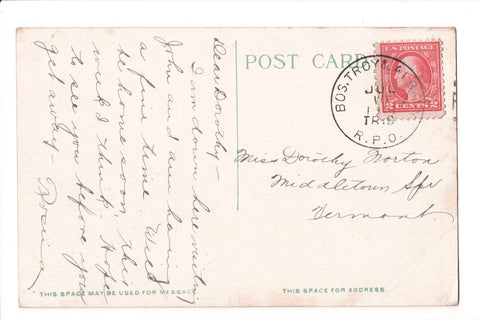 POST CARD
U.S. POSTAGE
2 CENTS 2
BOS. TROY &
JUL
TR.9
R.P.O.
Dear Dorothy –
I am down here visiting
John and am having
a fine time. Will
be home soon, this
week I think. Hope
to see you before you
get away –
Miss Dorothy Norton
Middletown Spr
Vermont.
THIS SPACE MAY BE USED FOR MESSAGE.
THIS SPACE FOR ADDRESS.